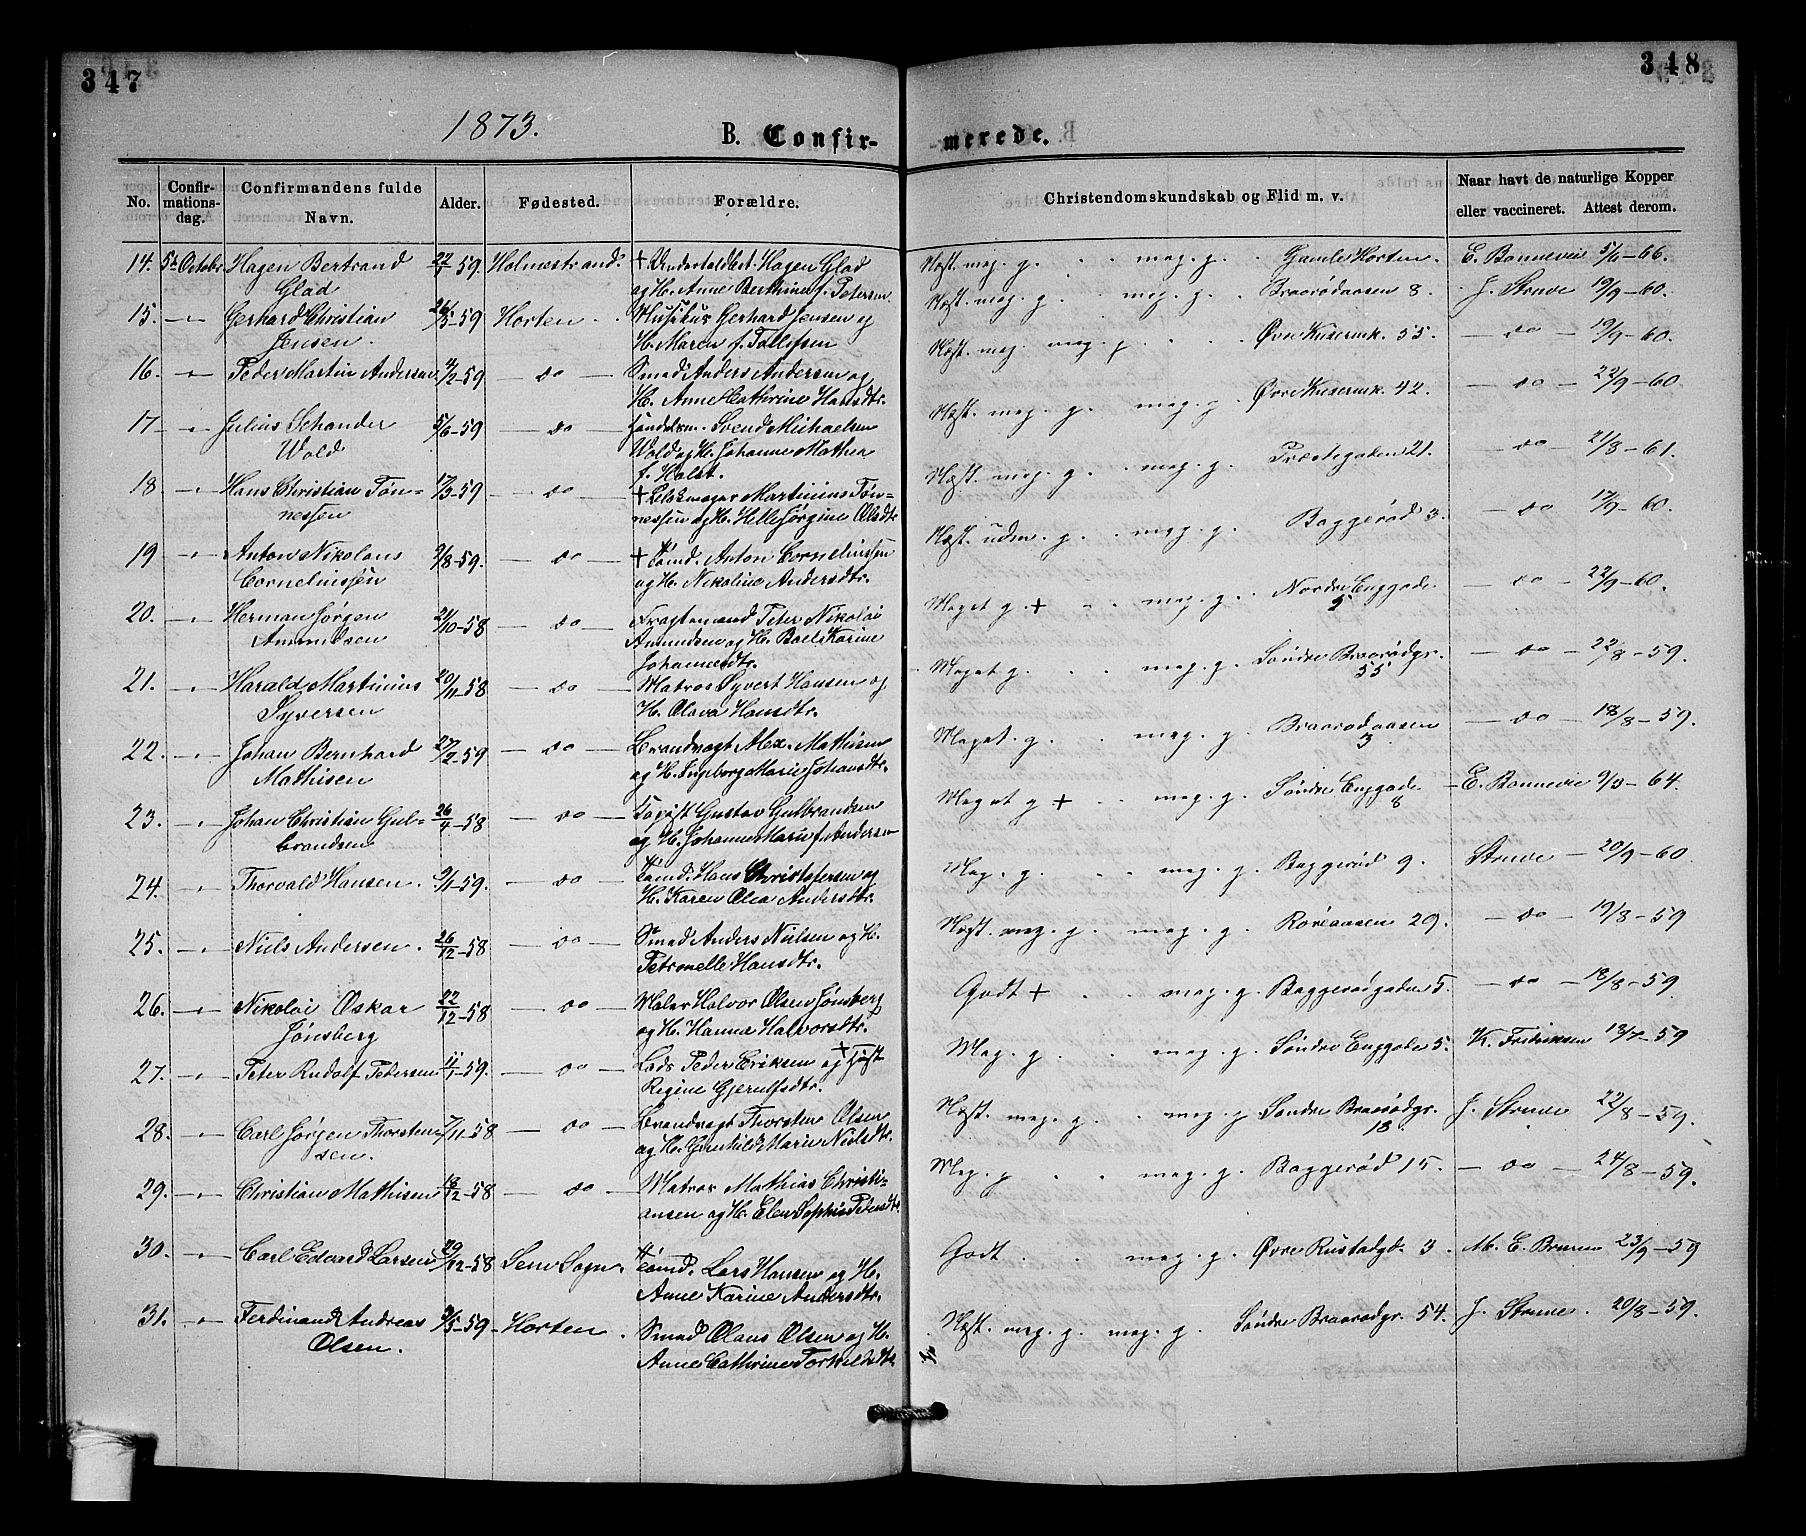 347
348
1873.
B. Confir-
merede.
No.
Confir-
mations-
dag.
Confirmandens fulde
Navn.
Alder.
Fødested.
Forældre.
Christendomskundskab og Flid m. v.
Naar havt de naturlige Kopper
eller vaccineret. Attest derom.
14. 5te Octobr Hagen Bertrand 22/1 59 Holmestrand. + Hagen Glad
Glad og H. Anne Berthine f. Petersen
15. —„— Gerhard Christian 26/3-59 Horten. Musikus Gerhard Jensen og
Jensen. H. Maren f. Tollefsen
16. —„— Peder Martin Andersen 4/2-59 — do — Smed Anders Andersen og
H. Anne Cathrine Hansdtr.
17 —„— Julius Schander 5/6-59 — do — Handelsm. Svend Michaelsen
Wold Wold og H. Johanne Mathea
f. Holst.
18. —„— Hans Christian Tøn- 17/3-59 — do — + Martinius Tøn-
nessen nessen og H. Helle Jørgine Olsdtr
19 —„— Anton Nikolaus 9/8-59. — do — + Tømd. Anton Corneliussen
Corneliussen og H. Nikoline Andersdtr.
20. —„— Herman Jørgen 21/10-58 — do — Fragtemand Peter Nikolai
Amundsen Amundsen og H. Boel Karine
Johannesdtr.
21. —„— Harald Martinius 20/11-58 — do — Matros Syvert Hansen og
Syversen H. Olava Hansdtr.
22. —„— Johan Bernhard 27/2-59 — do — Brandvagt Alex. Mathisen
Mathisen og H. Ingeborg Marie Johansdtr.
23. —„— Johan Christian Gul- 26/4-58 — do — Gustav Gulbrandsen
brandsen og H. Johanne Marie f. Andersen
24. —„— Thorvald Hansen. 9/1-59. — do — Tømd. Hans Christofersen og
H. Karen Olea Andersdtr.
25. —„— Niels Andersen. 26/12-58 — do — Smed Anders Nielsen og H.
Petronelle Hansdtr.
26. —„— Nikolai Oskar 22/12-58 — do — Maler Halvor Olsen Jønsberg
Jønsberg og H. Hanna Halvorsdtr.
27. —„— Peter Rudolf Pedersen 11/1-59. — do — Lods Peder Eriksen og +
Regine Gjerulfsdtr.
28. —„— Carl Jørgen Thorsten- 7/11-58 — do — Brandvagt Thorsten Olsen
sen. og H. Gunhild Marie Nielsdtr.
29. —„— Christian Mathisen 18/12-58 — do — Matros Mathias Christi-
ansen og H. Elen Sophie Pedersdtr.
30. —„— Carl Edvard Larsen 29/12-58 Sem Sogn. Tømd. Lars Hansen og H.
Anne Karine Andersdtr.
31. —„— Ferdinand Andreas 9/5-59 Horten. Smed Olaus Olsen og H.
Olsen. Anne Cathrine Torkildsdtr
Næst. meg. g. meg. g. Gamle Horten. E. Bonnevie 5/11-66.
Næst. meg. g. meg. g. Braarødaasen 8. J. Struve 19/9-60.
Næst. meg. meg. g. Øvre Keiserink. 55. — do — 19/9-60.
Næst. meg. g. meg. g. Øvre Keiserink. 42. — do — 22/9-60
Næst. meg. g. meg. g. Præstegaden 21. — do — 21/8-61.
Næst. udm. g. meg. g. Baggerød 3. — do — 17/9-60.
Meget g. + meg. g. Nordre Enggade — do — 22/9-60.
5
Meget g. meg. g. Søndre Braarødgr. — do — 22/8-59.
55
Meget g. meg. g. Braarødaasen — do — 18/8-59.
3
Meget g + meg. g. Søndre Enggade E. Bonnevie 9/3-64.
8
Meg. g. meg. g. Baggerød 9. Struve — 20/9-60.
Næst. meg. g. meg. g. Roreaasen 29. — do — 19/8-59
Godt + meg. g. Baggerødgaden 5. — do — 18/8-59.
Meg. g. meg. g. Søndre Enggade 5. K. Fredriksen 13/7-59
Næst. meg. g. meg. g Søndre Braarødgr. J. Struve 22/8-59.
18
Meg. g meg. g. Baggerød 15. — do — 24/8-59.
Godt. meg. g. Øvre Rustadgd. 3. M. E. 23/9-59
Næst. meg. g. meg. g. Søndre Braarødgr. 54. J. Struve. 20/8-59.